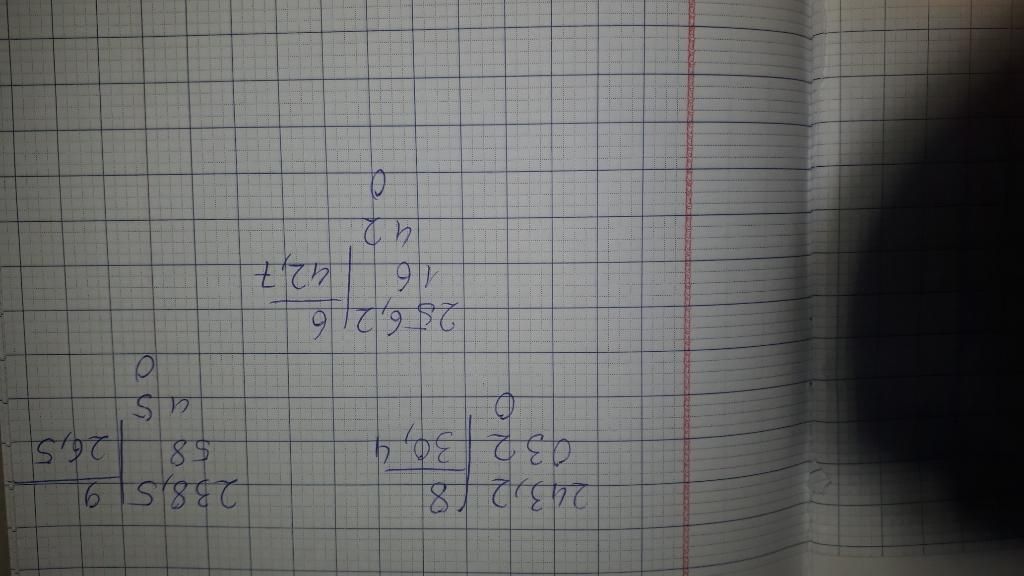 243,2 | 8
032 | 30,4
0
238,5 | 9
58 | 26,5
45
0
256,2 | 6
16 | 42,7
42
0